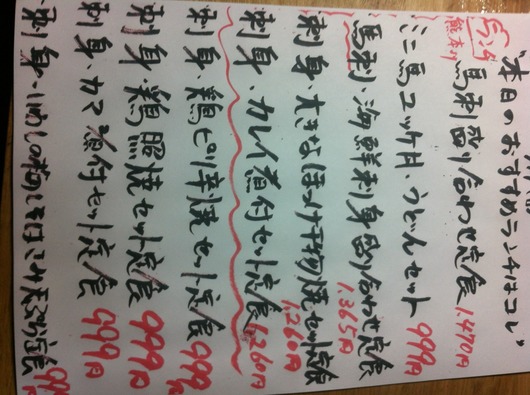 本日のおすすめランチはコレ
ランチ
熊本より
馬刺盛り合わせ定食 1,470円
ミニ馬ユッケ丼・うどんセット 999円
馬刺・海鮮刺身盛り合わせ定食 1,365円
刺身・大きなほっけ干物焼セット定食 1,260円
刺身・カレイ煮付セット定食 1,260円
刺身・鶏ピリ辛焼セット定食 999円
刺身・鶏照焼セット定食 999円
刺身・カマ煮付セット定食 999円
刺身・いわしの 定食